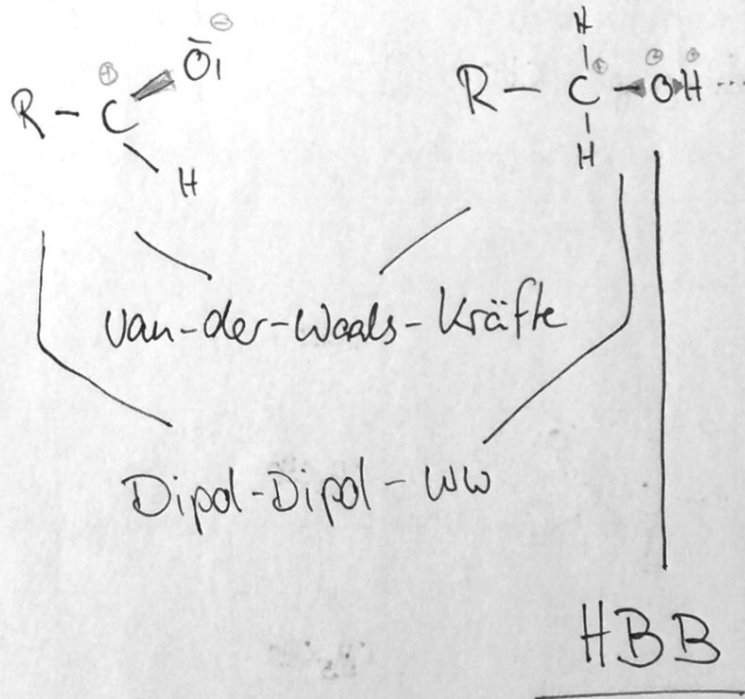 ⊖
⊕ O̅ı
R – C
H
H
R – C – OH ...
⊕ ⊖ ⊕
H
van-der-Waals-Kräfte
Dipol-Dipol-WW
HBB